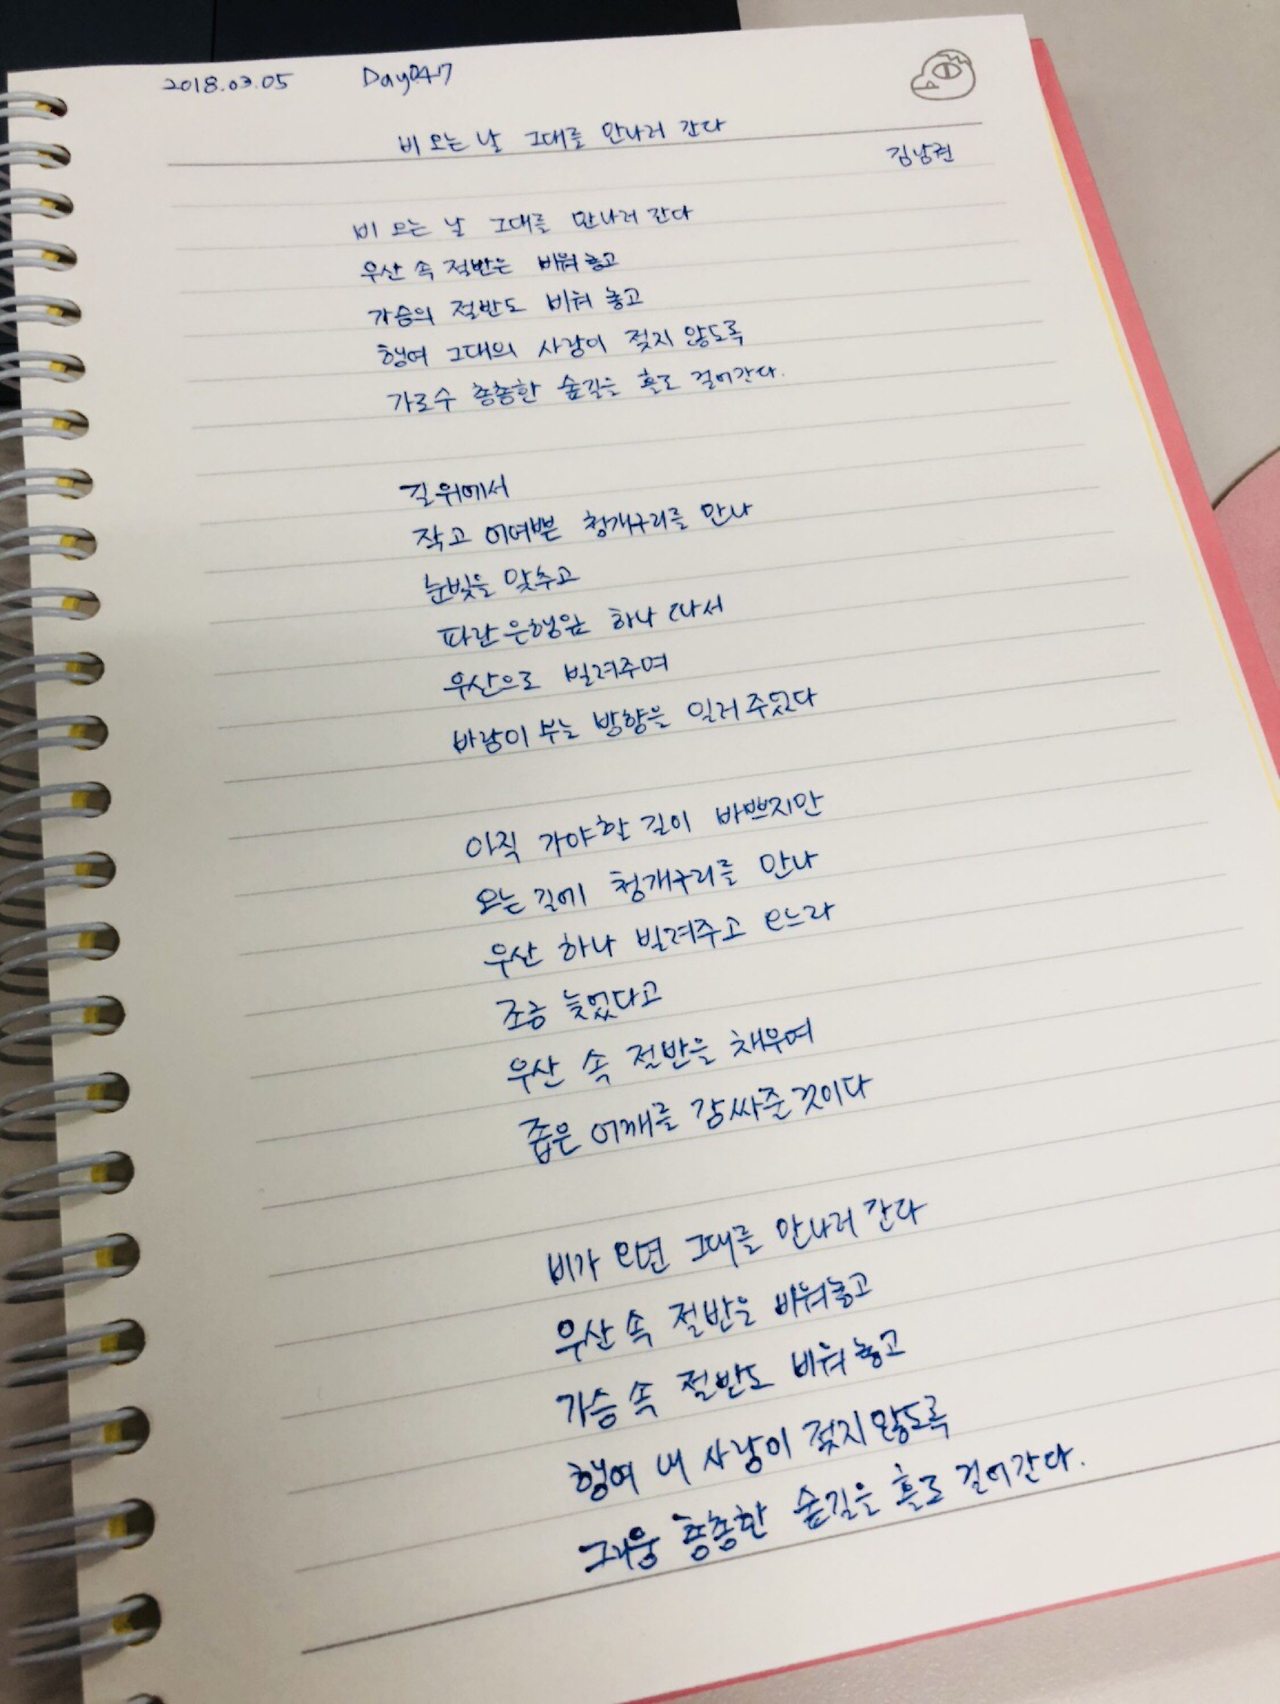 2018.03.05 Day047
비 오는 날 그대를 만나러 간다
김남권
비 오는 날 그대를 만나러 간다
우산 속 절반은 비워 놓고
가슴의 절반도 비워 놓고
행여 그대의 사랑이 젖지 않도록
가로수 총총한 숲길을 홀로 걸어간다.
길위에서
작고 어여쁜 청개구리를 만나
눈빛을 맞추고
파란 은행잎 하나 따서
우산으로 빌려주며
바람이 부는 방향을 일러 주었다
아직 가야할 길이 바쁘지만
오는 길에 청개구리를 만나
우산 하나 빌려주고 오느라
조금 늦었다고
우산 속 절반을 채우며
좁은 어깨를 감싸준 것이다
비가 오면 그대를 만나러 간다
우산 속 절반을 비워놓고
가슴 속 절반도 비워 놓고
행여 내 사랑이 젖지 않도록
그리움 총총한 숲길을 홀로 걸어간다.